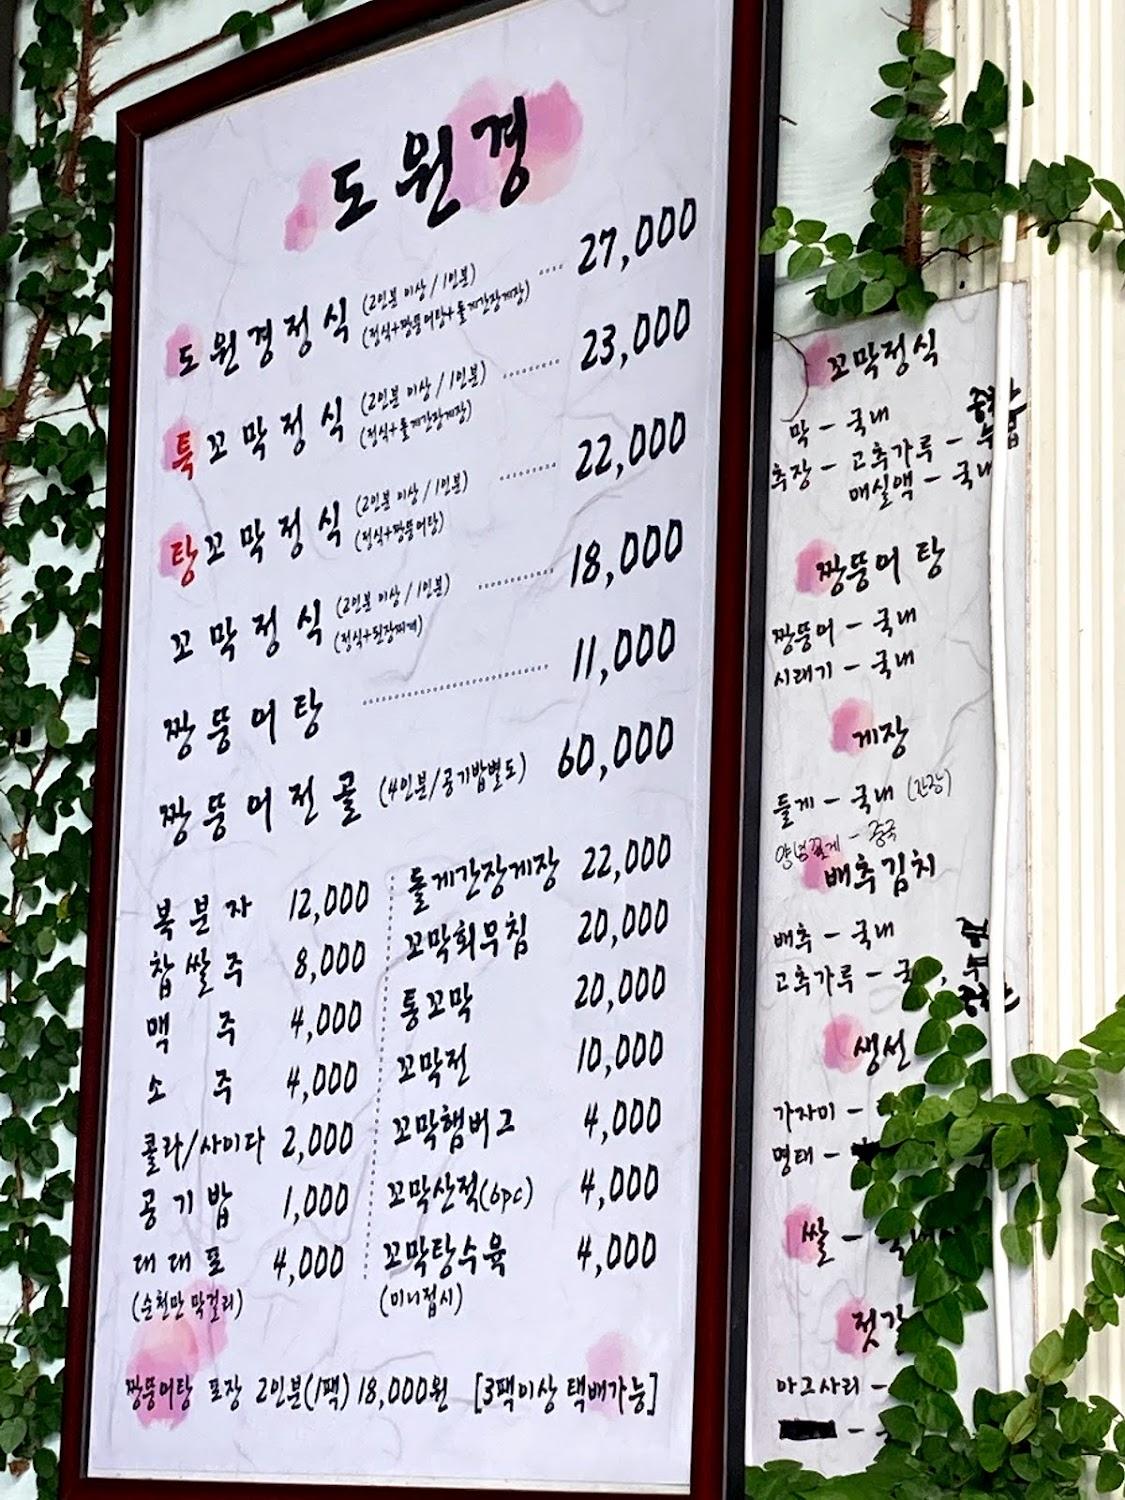 도원경
도원경정식 (2인분 이상 / 1인분) 27,000
(정식+짱뚱어탕+돌게간장게장)
특꼬막정식 (2인분 이상 / 1인분) 23,000
(정식+돌게간장게장)
탕꼬막정식 (2인분 이상 / 1인분) 22,000
(정식+짱뚱어탕)
꼬막정식 (2인분 이상 / 1인분) 18,000
(정식+된장찌개)
짱뚱어탕 11,000
짱뚱어전골 (4인분/공기밥별도) 60,000
복분자 12,000
찹쌀주 8,000
맥주 4,000
소주 4,000
콜라/사이다 2,000
공기밥 1,000
대대포 4,000
(순천만 막걸리)
돌게간장게장 22,000
꼬막회무침 20,000
통꼬막 20,000
꼬막전 10,000
꼬막햄버그 4,000
꼬막산적(6pc) 4,000
꼬막탕수육 4,000
(미니접시)
짱뚱어탕 포장 2인분(1팩) 18,000원 [3팩이상 택배가능]
꼬막정식
막 - 국내
추장 - 고추가루 -
매실액 - 국내
짱뚱어 탕
짱뚱어 - 국내
시래기 - 국내
게장
돌게 - 국내 (간장)
양념꽃게 - 중국
배추김치
배추 - 국내
고추가루 - 국
생선
가자미 -
명태 -
쌀 - 국내
젓갈
아그사리 -